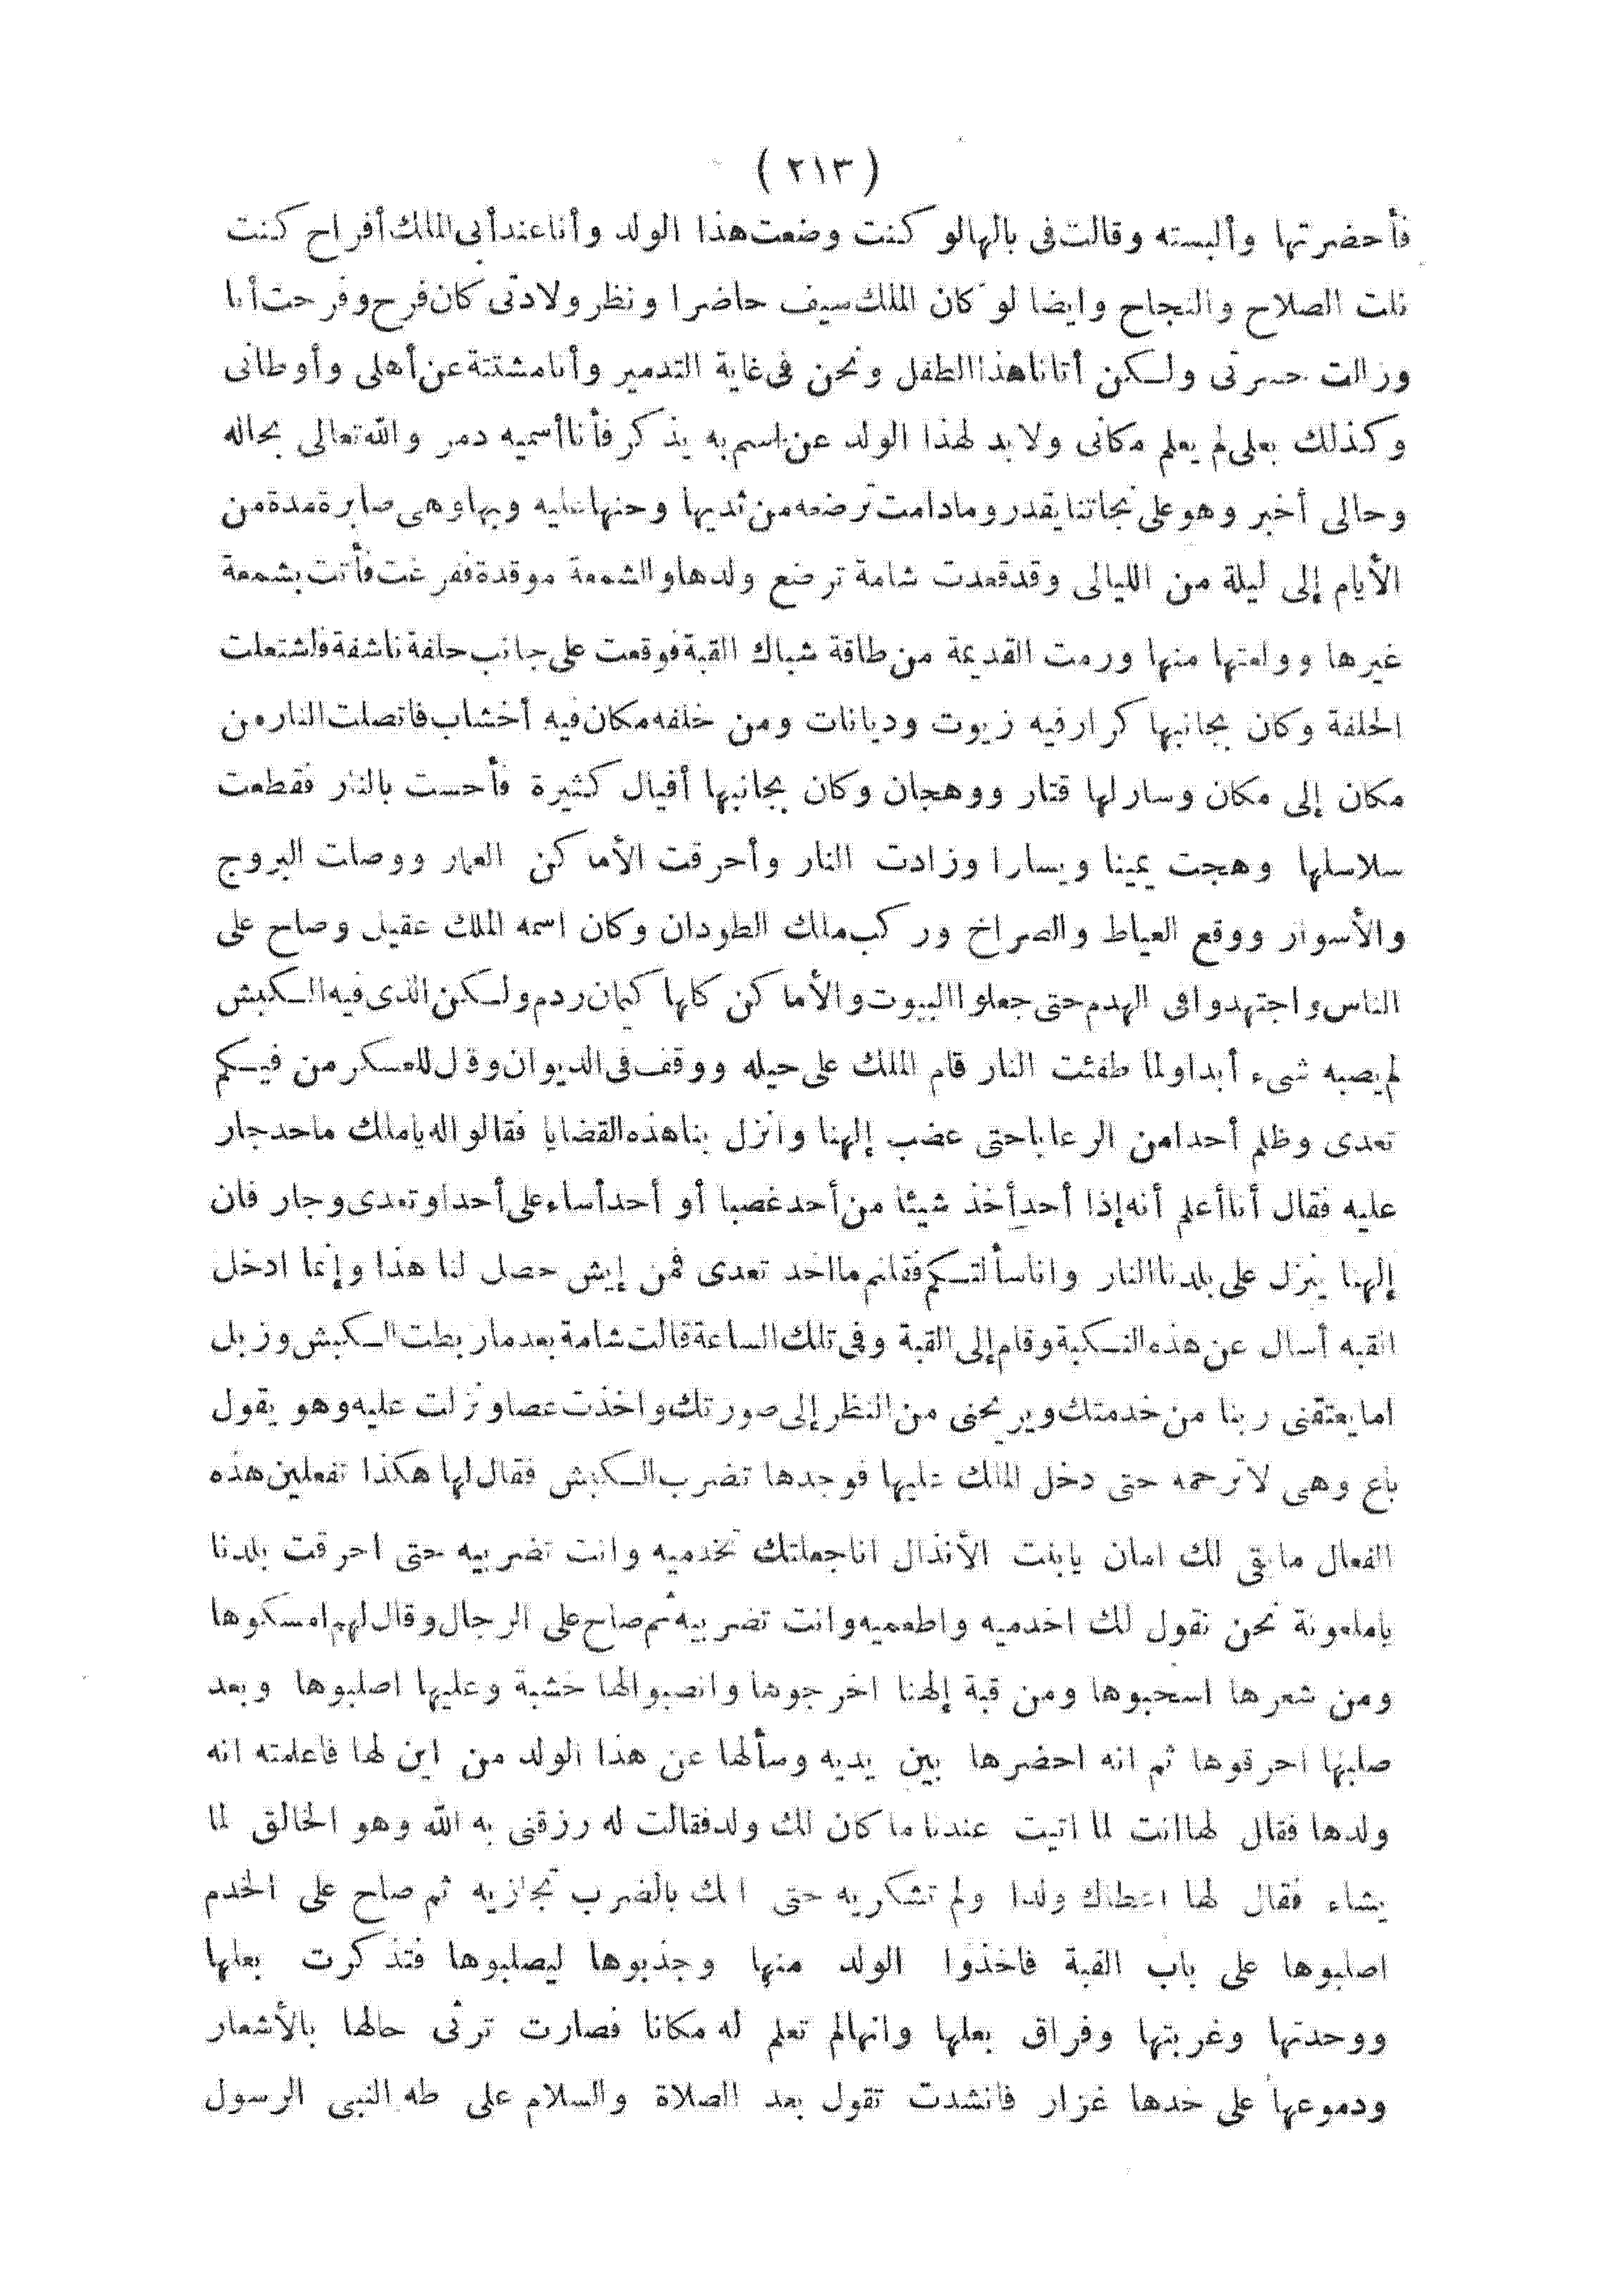 ( ٢١٣ )
فأحضرتها وألبسته وقالت فى بالها لو كنت وضعت هذا الولد وأنا عند أبى الملك أفراح كنت
نلت الصلاح والنجاح وايضا لو كان الملك سيف حاضرا ونظر ولادتى كان فرح وفرحت أنا
وزالت حسرتى ولـكن أتانا هذا الطفل ونحن فى غاية التدمير وأنا مشتتة عن أهلى وأوطانى
وكذلك بعلى لم يعلم مكانى ولا بد لهذا الولد عن اسم به يذكر فأنا أسميه دمر والله تعالى بحاله
وحالى أخبر وهو على نجاتنا يقدر وما دامت ترضعه من ثديها وحنها عليه وبها وهى صابرة مدة من
الأيام إلى ليلة من الليالى وقد قعدت شامة ترضع ولدها والشمعة موقدة ففرغت فأتت بشمعة
غيرها وولعتها منها ورمت القديمة من طاقة شباك القبة فوقعت على جانب حلفة ناشفة فاشتعلت
الحلفة وكان بجانبها كرار فيه زيوت وديانات ومن خلفه مكان فيه أخشاب فاتصلت النار من
مكان إلى مكان وسار لها قتار ووهجان وكان بجانبها أفيال كثيرة فأحست بالنار فقطعت
سلاسلها وهجت يمينا ويسارا وزادت النار وأحرقت الأماكن العمار ووصلت البروج
والأسوار ووقع العياط والصراخ وركب ملك الطودان وكان اسمه الملك عقيل وصاح على
الناس واجتهدوا فى الهدم حتى جعلوا البيوت والأماكن كلها كيمان ردم ولـكن الذى فيه الـكبش
لم يصبه شىء أبدا ولما طفئت النار قام الملك على حيله ووقف فى الديوان وقال للعسكر من فيـكم
تعدى وظلم أحدا من الرعايا حتى غضب إلهنا وأنزل بنا هذه القضايا فقالوا له يا ملك ما حد جار
عليه فقال أنا أعلم أنه إذا أحد أخذ شيئا من أحد غصبا أو أحد أساء على أحد او تعدى وجار فان
إلهنا ينزل على بلدنا النار وانا سألتـكم فقلتم ما احد تعدى فمن إيش حصل لنا هذا وإنما ادخل
القبه أسال عن هذه النـكبة وقام إلى القبة وفى تلك الساعة قالت شامة بعد ما ربطت الـكبش وزبل
اما يعتقنى ربنا من خدمتك ويريحنى من النظر إلى صورتك واخذت عصا ونزلت عليه وهو يقول
باع وهى لا ترحمه حتى دخل الملك عليها فوجدها تضرب الـكبش فقال لها هكذا تفعلين هذه
الفعال ما بقى لك امان يا بنت الأنذال انا جعلتك تخدميه وانت تضربيه حتى احرقت بلدنا
يا ملعونة نحن نقول لك اخدميه واطعميه وانت تضربيه ثم صاح على الرجال وقال لهم امسكوها
ومن شعرها اسحبوها ومن قبة إلهنا اخرجوها وانصبوا لها خشبة وعليها اصلبوها وبعد
صلبها احرقوها ثم انه احضرها بين يديه وسألها عن هذا الولد من اين لها فاعلمته انه
ولدها فقال لها انت لما اتيت عندنا ما كان لك ولد فقالت له رزقنى به الله وهو الخالق لما
يشاء فقال لها اعطاك ولدا ولم تشكريه حتى انك بالضرب تجازيه ثم صاح على الخدم
اصلبوها على باب القبة فاخذوا الولد منها وجذبوها ليصلبوها فتذكرت بعلها
ووحدتها وغربتها وفراق بعلها وانها لم تعلم له مكانا فصارت ترثى حالها بالأشعار
ودموعها على خدها غزار فانشدت تقول بعد الصلاة والسلام على طه النبى الرسول